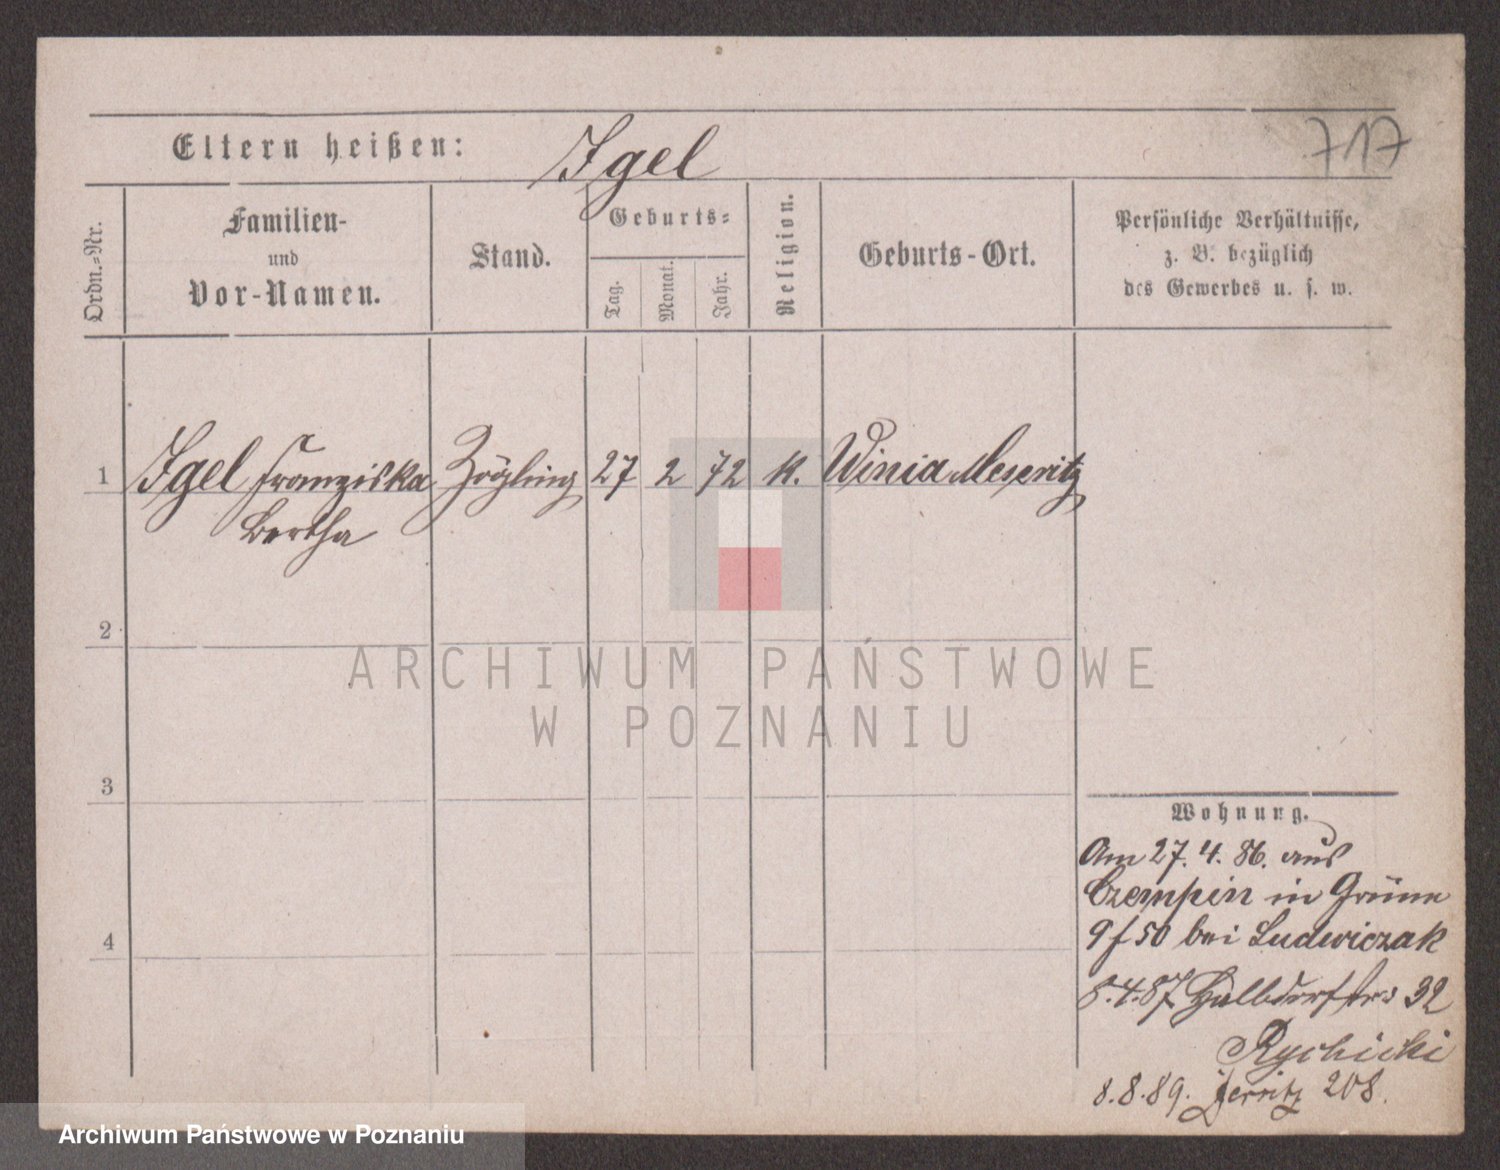 717
Eltern heißen: Igel
Ordn.-Nr.
Familien-
und
Vor-Namen.
Stand.
Geburts-
Tag.
Monat.
Jahr.
Religion.
Geburts-Ort.
Persönliche Verhältnisse,
z. B. bezüglich
des Gewerbes u. s. w.
1 Igel Franziska Zögling 27 2 72 k. Winia Meseritz
Bertha
2
3
4
Wohnung.
Am 27. 4. 86. aus
Czempin in Grüne
9 f 50 bei Ludwiczak
8.4.87 Halbdorfstrs 32
Rychicki
8.8.89. 208.
ARCHIWUM PAŃSTWOWE
W POZNANIU
Archiwum Państwowe w Poznaniu